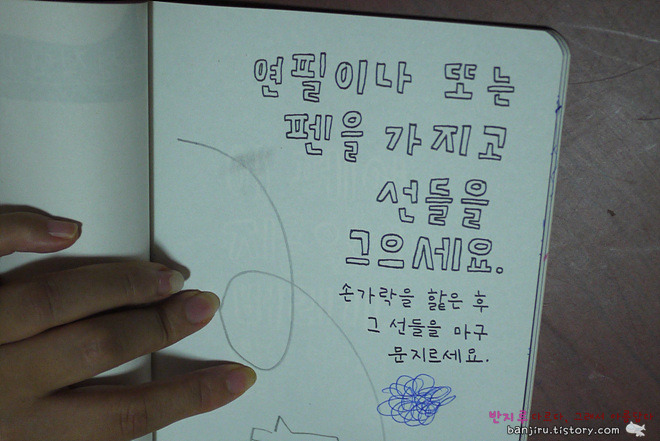 연필이나 또는
펜을 가지고
선들을
그으세요.
손가락을 핥은 후
그 선들을 마구
문지르세요.
banjiru.tistory.com